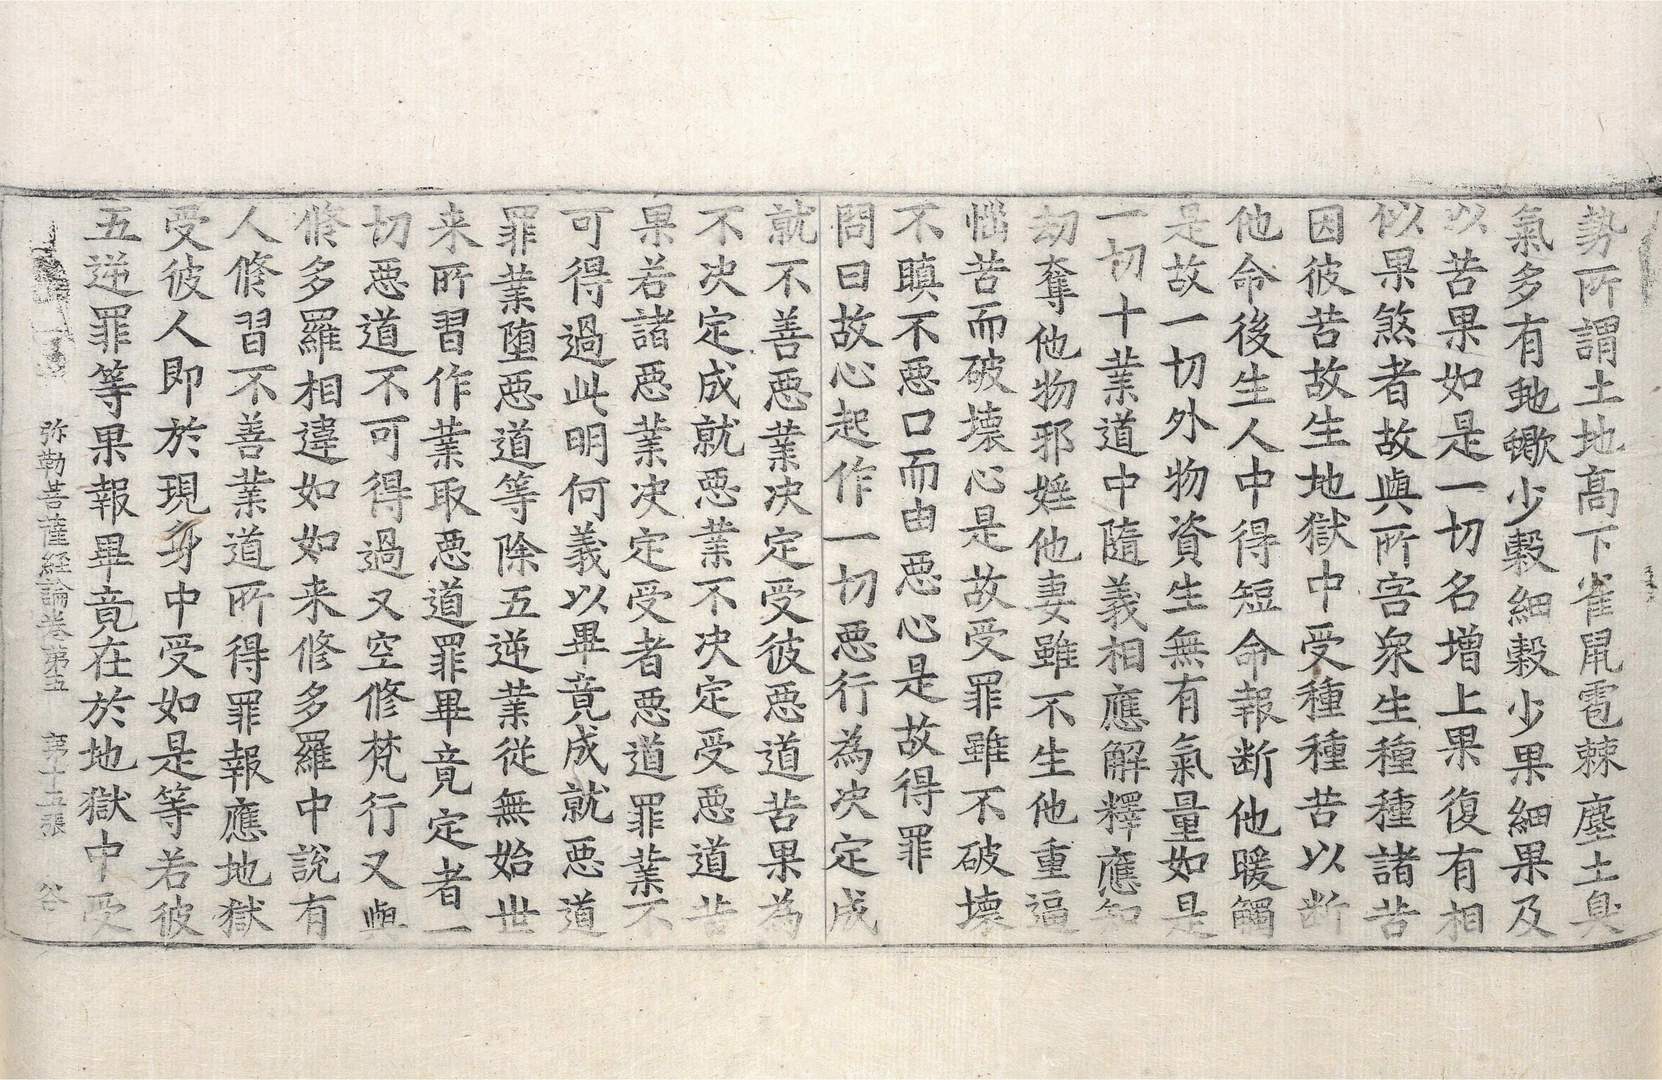 勢所謂土地高下雀鼠雹棘塵土臭
氣多有虵蠍少穀細穀少果細果及
以苦果如是一切名増上果復有相
似果煞者故與所害衆生種種諸苦
因彼苦故生地獄中受種種苦以斷
他命後生人中得短命報断他暖觸
是故一切外物資生無有氣量如是
一切十業道中隨義相應解釋應知
劫奪他物邪婬他妻雖不生他重逼
惱苦而破壊心是故受罪雖不破壊
不瞋不惡口而由惡心是故得罪
問曰故心起作一切惡行為决定成
就不善惡業决定受彼惡道苦果為
不决定成就惡業不决定受惡道苦
果若諸惡業决定受者惡道罪業不
可得過此明何義以畢竟成就惡道
罪業堕惡道等除五逆業従無始世
来所習作業取惡道罪畢竟定者一
切惡道不可得過又空修梵行又與
修多羅相違如如来修多羅中說有
人修習不善業道所得罪報應地獄
受彼人即於現身中受如是等若彼
五逆罪等果報畢竟在於地獄中受
弥勒菩薩經論巻第五 第十五張 谷